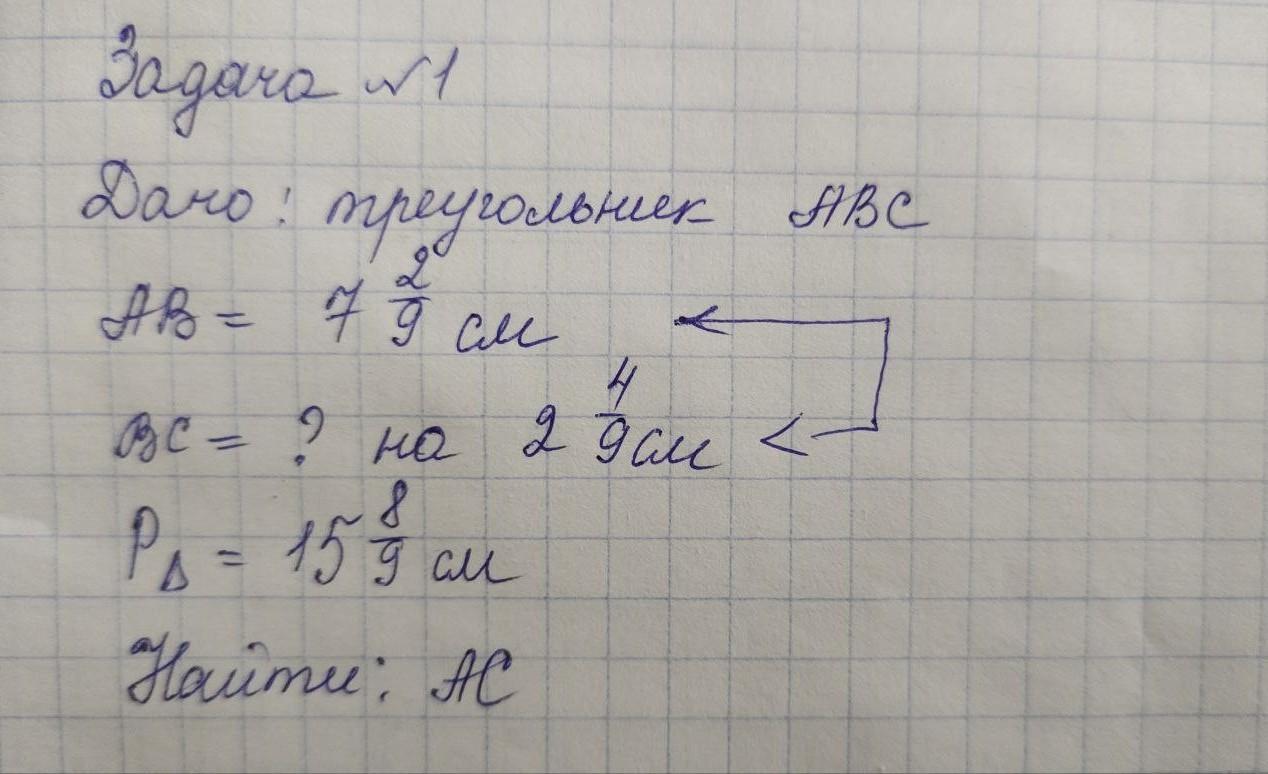 Задача №1
Дано: треугольник ABC
AB = 7 2/9 см
BC = ? на 2 4/9 см <
P△ = 15 8/9 см
Найти: AC